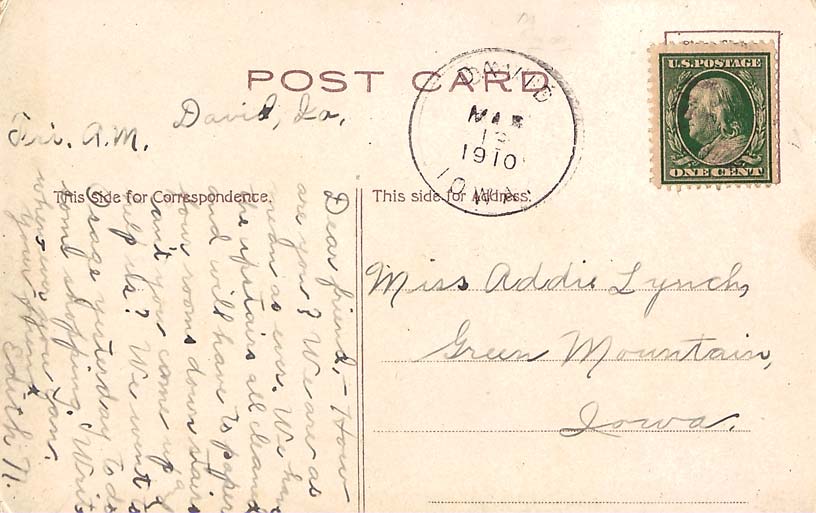 POST CARD
DAVID
MAR
1910
IOWA
U.S. POSTAGE
ONE CENT
This side for Correspondence.
This side for Address.
David, Ia.
Fri. A.M.
Dear friend, - How
are you? We are as
mean as ever. We have
the upstairs all cleaned
and will have to paper
four rooms down stairs
can't you come up &
help us? We went to
Osage yesterday to do
some shopping. Write
when ever you can.
your friend
Edith N.
Miss Addie Lynch,
Green Mountain,
Iowa.